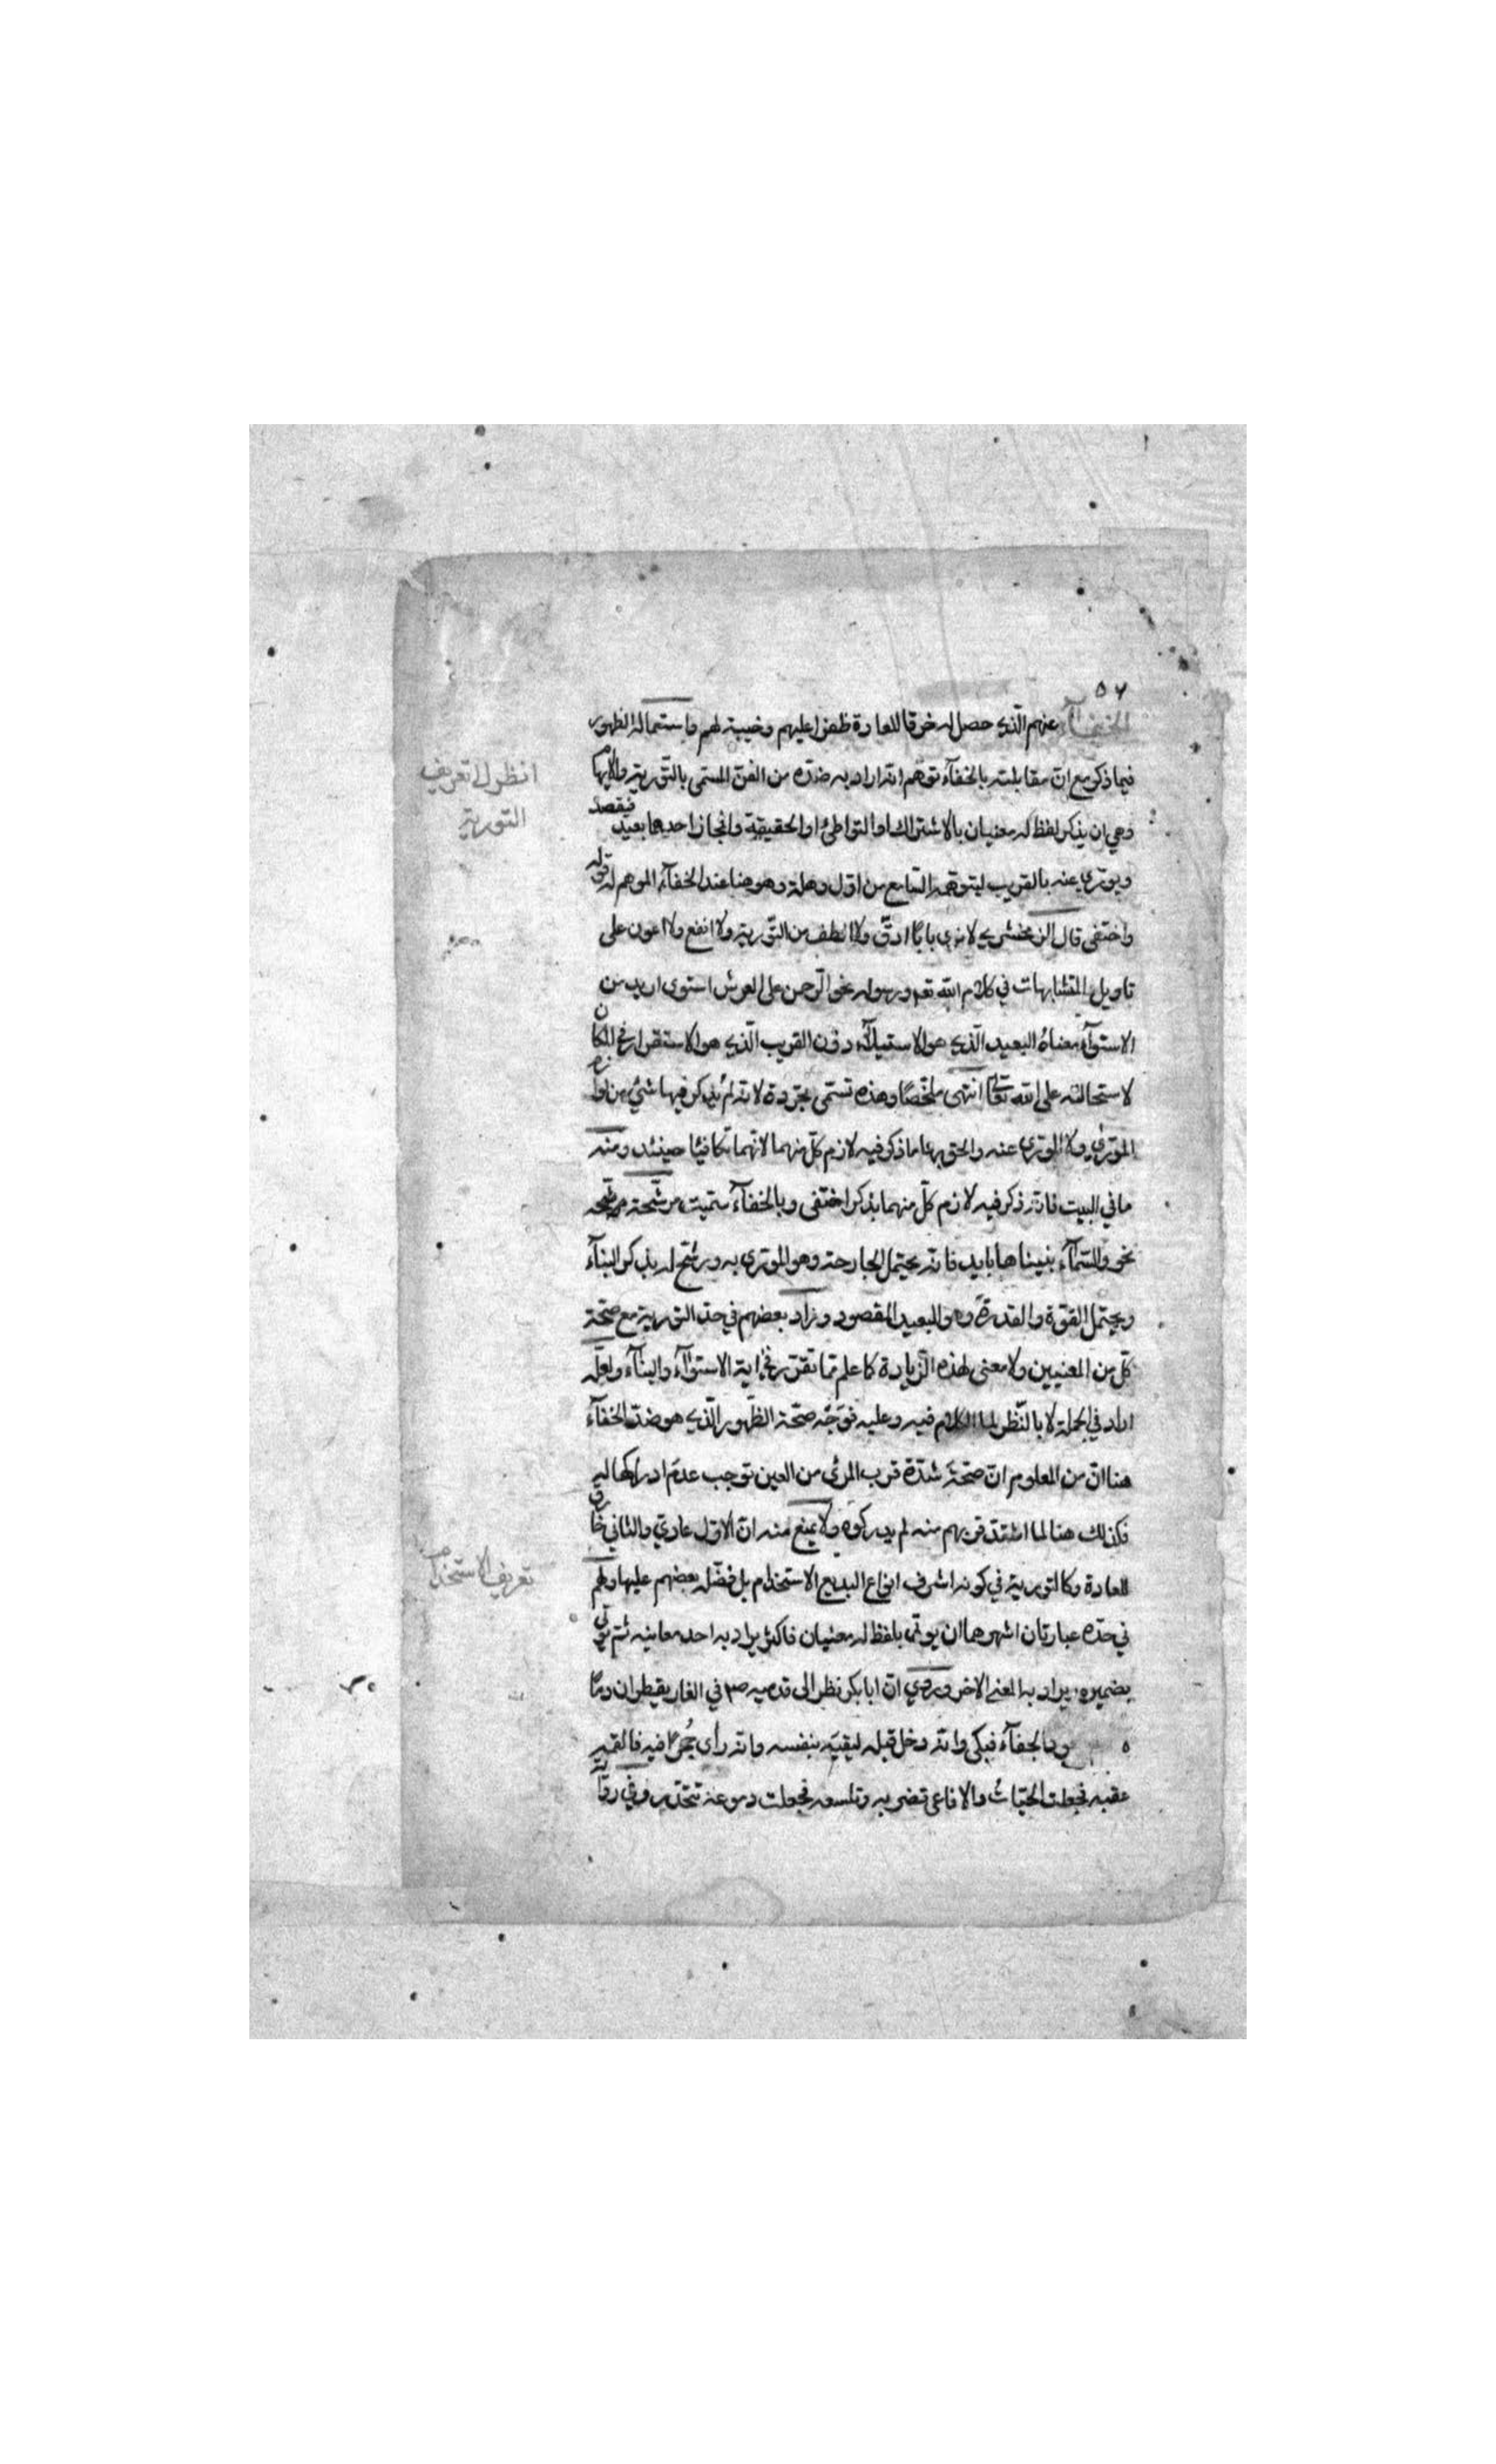 ٥٧
الخفآء عنهم الّذي حصل له خرقا للعادة ظفرا عليهم وخيبة لهم واستعماله الظهور
فيما ذكر مع انّ مقابلته بالخفآء توهم انّه اراد به ضدّه من الفنّ المسمّى بالتّورية والايهام
وهي ان يذكر لفظ له معنيان بالاشتراك او التواطئ او الحقيقة والمجاز احدهما بعيد فيقصد
ويورّي عنه بالقريب ليتوهّمه السّامع من اوّل وهلة وهو هنا عند الخفآء الموهم له قوله
واختفى قال الزمخشري لا نرى بابًا ادقّ ولا الطف من التّورية ولا انفع ولا اعون على
تاويل المتشابهات في كلام الله تعم ورسوله نحو الرّحمن على العرش استوى اريد من
الاستوآء معناهُ البعيد الّذي هو الاستيلآء دون القريب الّذي هو الاستقرار في المكان
لاستحالته على الله تعالى انتهى ملخّصًا وهذه تسمّى مجرّدة لانّه لم يُذكر فيها شئ من لوازم
المورّى ولا المورّى عنه والحق بها ما ذكر فيه لازم كلّ منهما لانّهما تكافيئا حينئذ ومنه
ما في البيت فانّه ذكر فيه لازم كلّ منهما بذكر اختفى وبالخفآء سمّيت مرشّحة مرشّحه
نحو والسّمآء بنيناها بايد فانّه يحتمل الجارحة وهو المورّى به ورشّح له بذكر البنآء
ويحتمل القوّة والقدرة وهو البعيد المقصود وزاد بعضهم في حدّ التورية مع صحّة
كلّ من المعنيين ولا معنى لهذه الزّيادة كما علم ممّا تقرّر في اية الاستوآء والبنآء ولعلّه
اراد في الجملة لا بالنّظر لما الكلام فيه وعليه فوَجْه صحّة الظّهور الّذي هو ضدّ الخفآء
هنا انّ من المعلوم انّ صحّة شدّة قرب المرئى من العين توجب عدم ادراكها له
فكذلك هنا لما اشتدّ قربهم منه لم يدركوه ولا يمنع منه انّ الاوّل عاديّ والثاني خارق
للعادة وكالتورية في كونه اشرف انواع البديع الاستخدام بل فضّله بعضهم عليها ولهم
في حدّه عبارتان اشهرهما ان يوتى بلفظ له معنيان فاكثر يراد به احد معانيه ثم يوتى
بضميره يراد به المعنى الاخر وروي انّ ابا بكر نظر الى قدميه صم في الغار يقطران دمًا
ه بالجفآء فبكى وانّه دخل قبله ليقيَه بنفسه وانّه رأى جُحرًا فيه فالقمه
عقبه فجعلت الحيّات والافاعى تضربه وتلسعه فجعلت دموعه تتحدّر وفي رواية
انظر الى تعريف
التورية
تعريف الاستخدام